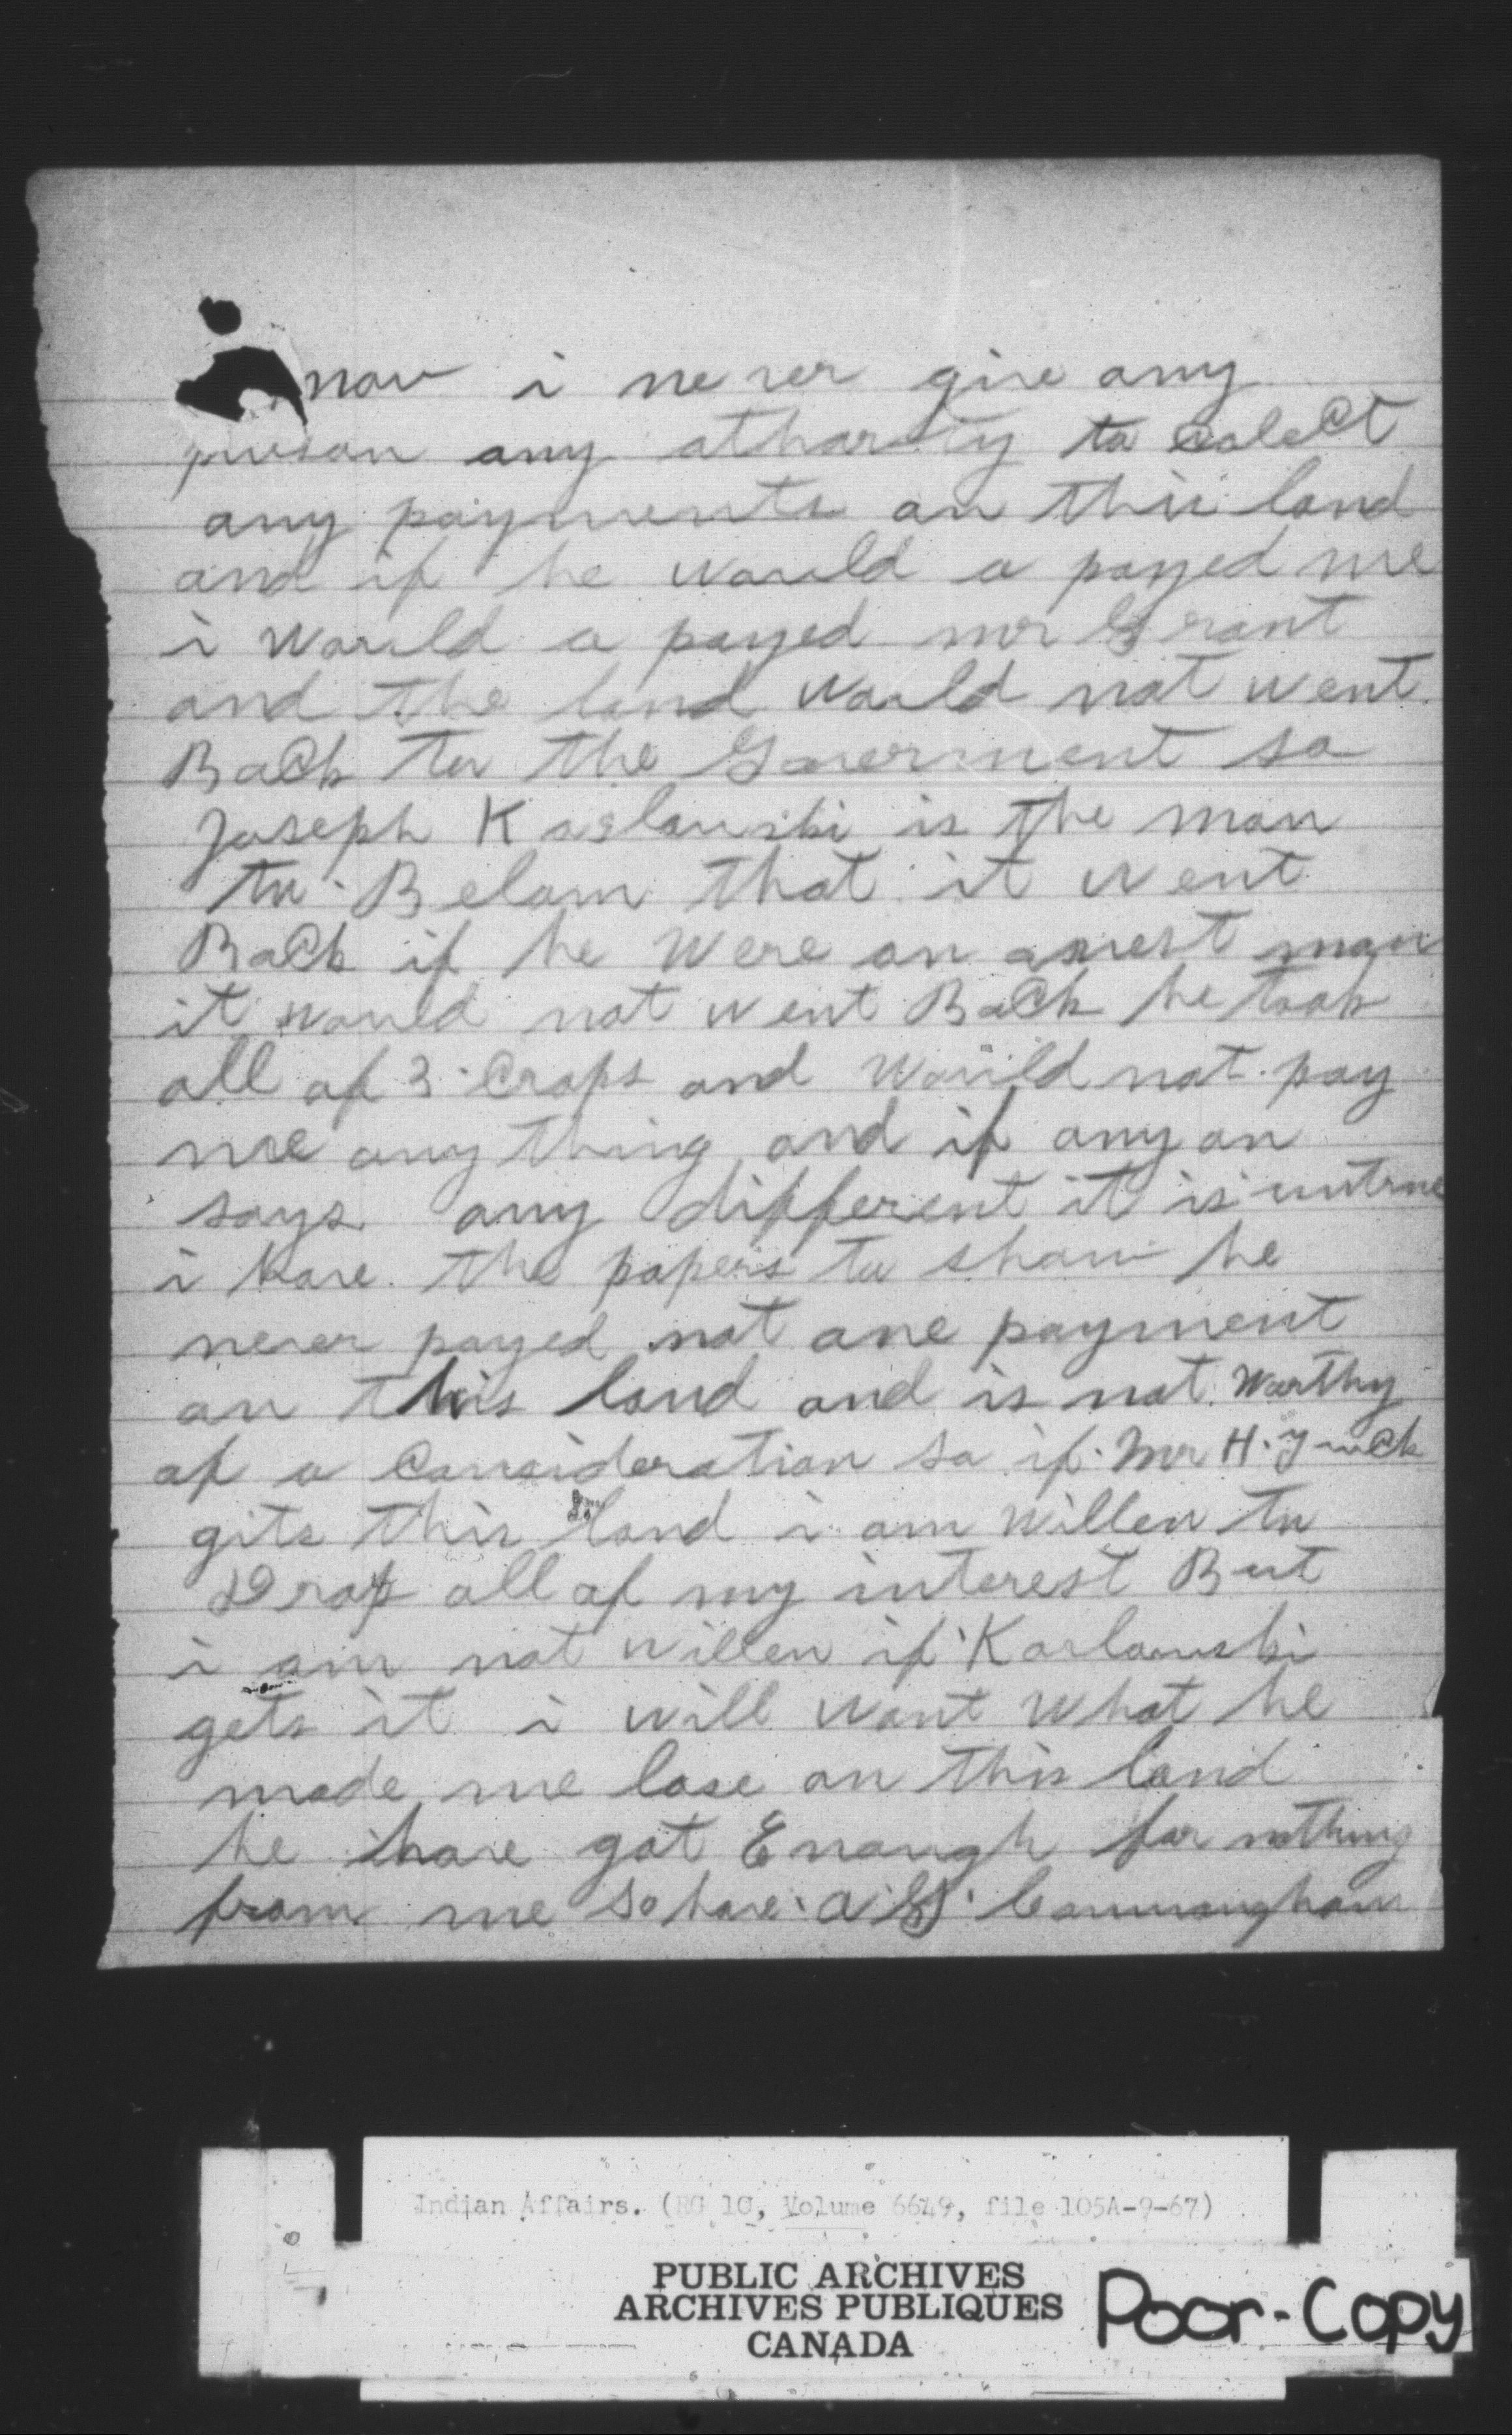 now i never give any
person any atharity to colect
any payments on this land
and if he would a payed me
i would a payed mr Grant
and the land would not went
Back to the Goverment so
Joseph Koslowski is the man
to Belam that it went
Back if he were an onest man
it would not went Back he took
all of 3 Crops and would not pay
me any thing and if any on
says any different it is untrue
i have the papers to show he
never payed not one payment
on this land and is not worthy
of a Consideration so if Mr H.
gits this land i am willen to
Drop all of my interest But
i am not willen if Karlowski
gets it i will want what he
made me lose on this land
he have got Enough for nothing
from me so have
Indian Affairs. (RG 10, Volume 6649, file 105A-9-67)
PUBLIC ARCHIVES
ARCHIVES PUBLIQUES
CANADA
Poor-Copy